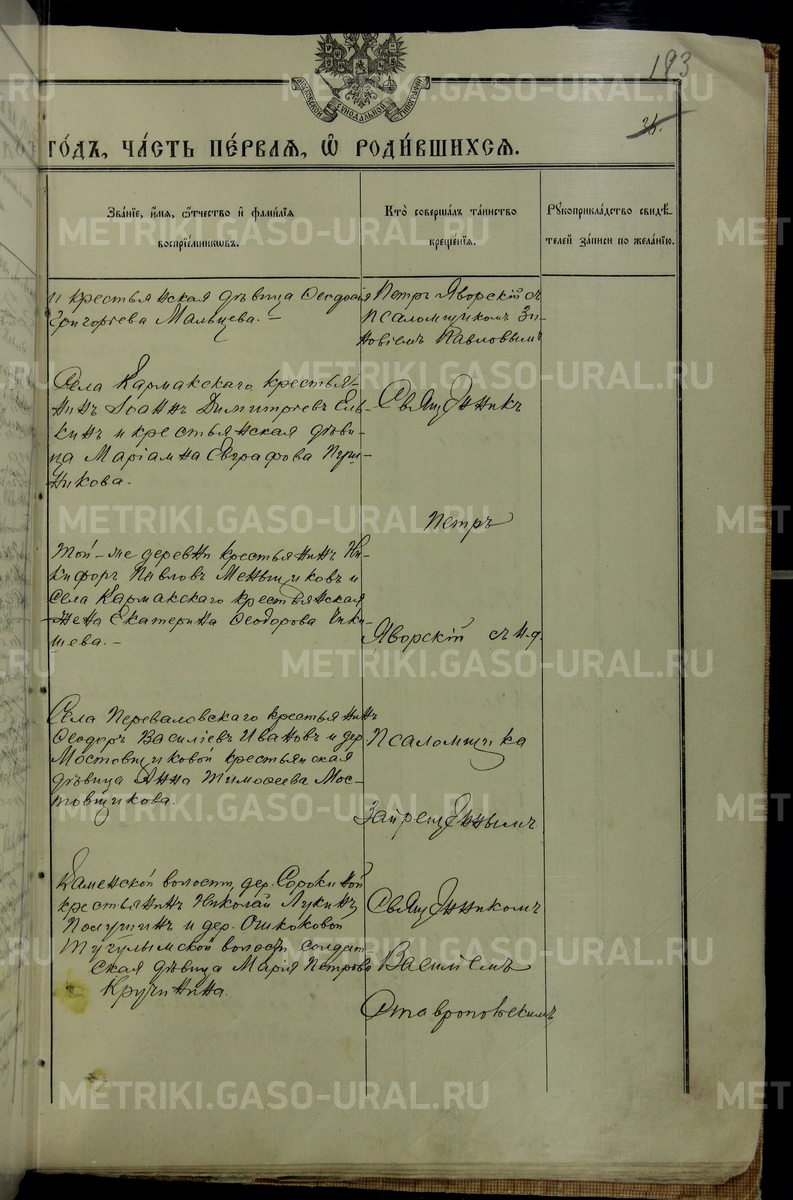 183
36.
годъ, часть первая, ѡ родившихся.
Званіе, имя, ѿчество и фамилія
воспріемниковъ.
Кто совершалъ таинство
крещенія.
Рукоприкладство свидѣ-
телей записи по желанію.
и крестьянская дѣвица Ѳеодосія
Григорьева Мальцева. –
Петръ Яворскій съ
Псаломщикомъ Зи-
новіемъ Павловымъ
Села Кармакскаго крестья-
нинъ Іоаннъ Димитріевъ Ель-
кинъ и крестьянская дѣви-
ца Маріамна Евграфова Пуш-
никова.
Священникъ
Петръ
Той-же деревни крестьянинъ Ни-
кифоръ Павловъ Меньщиковъ и
села Кармакскаго крестьянская
жена Екатерина Ѳеодорова Чики-
шева. –
Яворскій съ и. д.
Села Переваловскаго крестьянинъ
Ѳеодоръ Василіевъ Ивановъ и дер.
Мостовщиковой крестьянская
дѣвица Анна Тимоѳеева Мос-
товщикова.
Псаломщика
Запрещеннымъ
Каменской волости, дер. Сорокиной
крестьянинъ Николай Лукинъ
и дер. Ошкоковой
Тугулымской волости солдат
ская дѣвица Марія Петрова
Кручинина.
Священникомъ
Василіемъ
Ставропольскимъ
METRIKI.GASO-URAL.RU